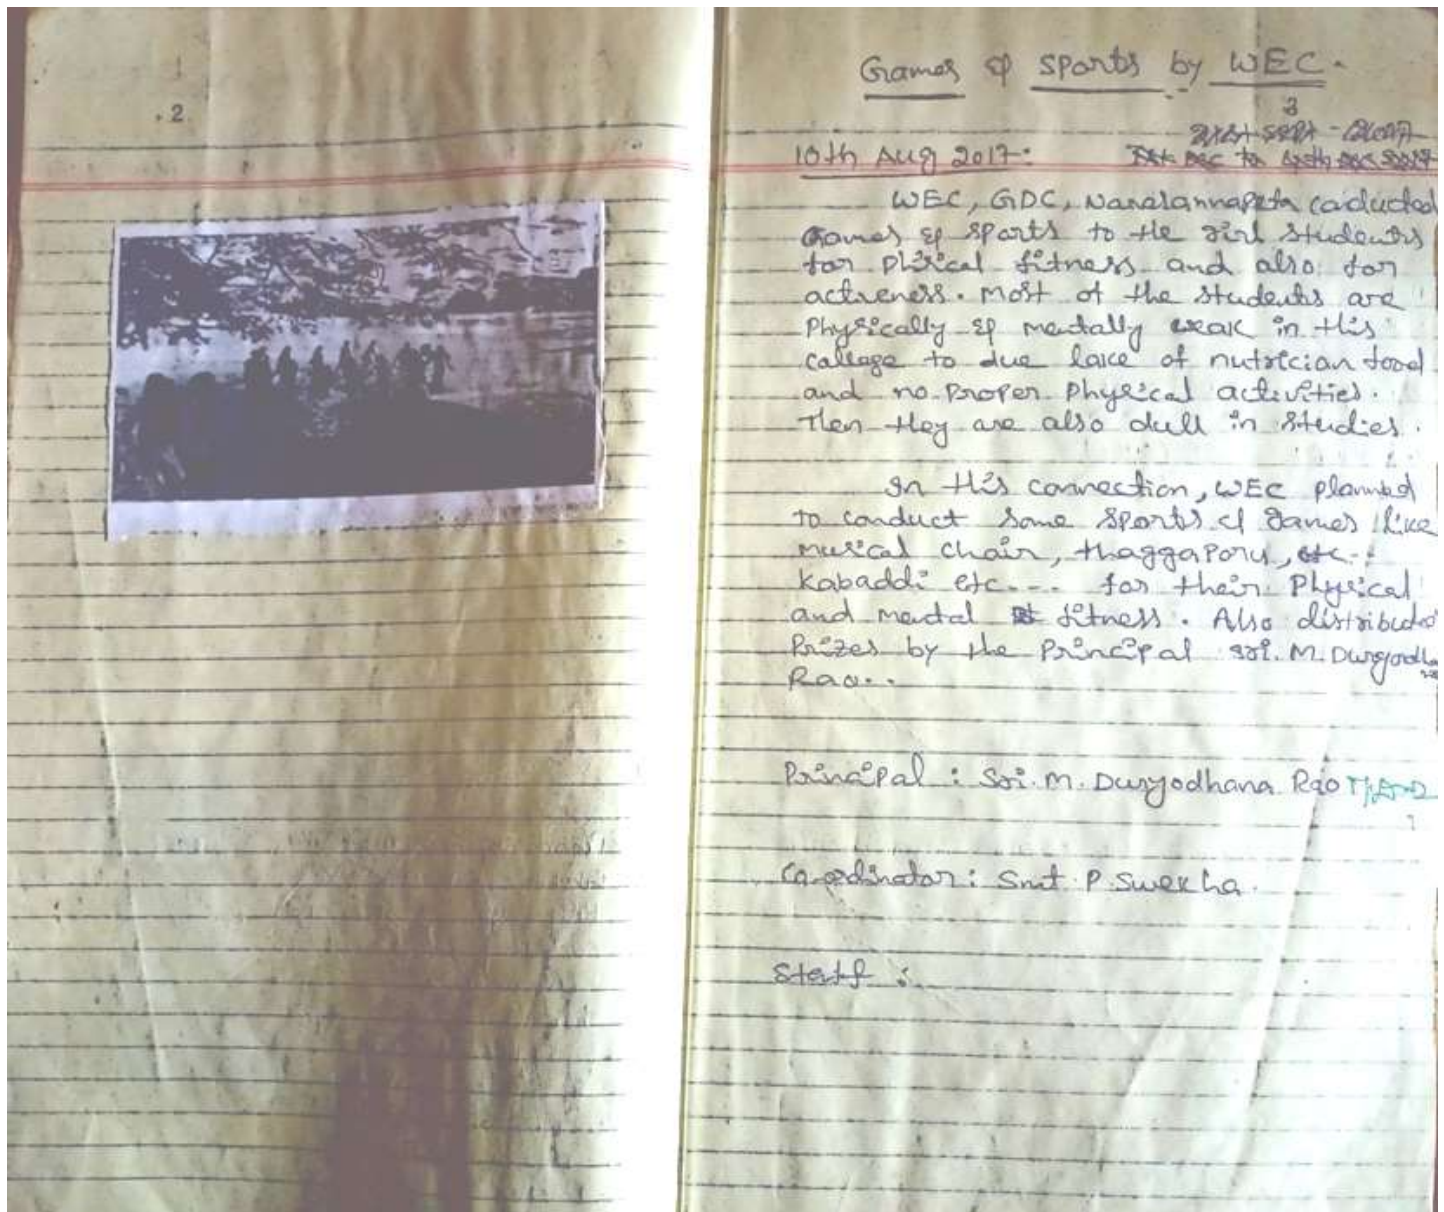 . 2
Games & sports by WEC.
3
10th Aug 2017:
WEC, GDC, Narasannapeta coducted
Games & sports to the girl students
for phisical fitness and also for
activeness. Most of the students are
physically & mentally weak in this
college to due lake of nutrician food
and no proper physical activities.
Then they are also dull in studies.
In this connection, WEC planned
to conduct some sports & games like
musical chair, thaggaporu, etc..
kabaddi etc... for their physical
and mental fitness. Also distributed
Prizes by the Principal sri. M. Duryodhana
Rao..
Principal : Sri. M. Duryodhana Rao
Co-ordinator : Smt. P. Swekha.
Staff :